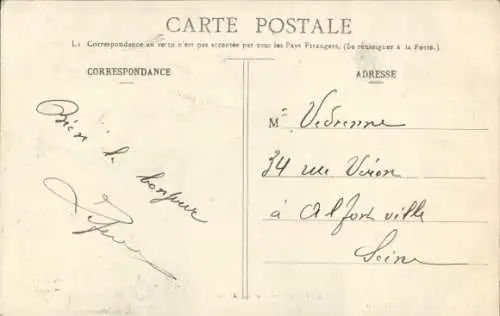 CARTE POSTALE
La Correspondance au recto n'est pas acceptée par tous les Pays Etrangers. (Se renseigner à la Poste.)
CORRESPONDANCE
Bien le
bonjour
ADRESSE
M Vedrenne
34 rue Véron
à Alfortville
Seine